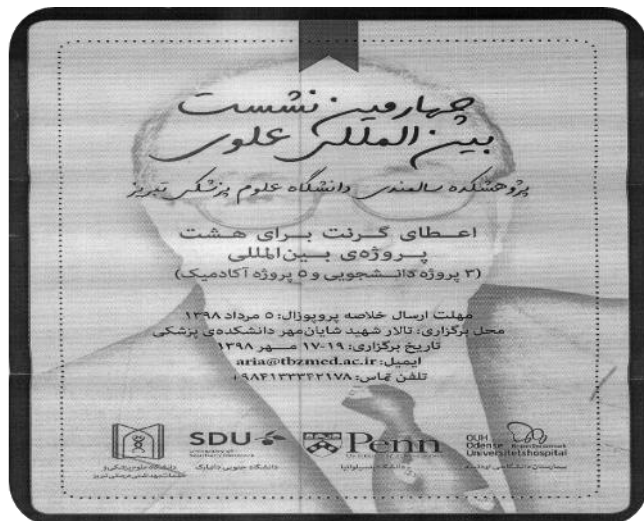 چهارمین نشست
بین المللی علوی
پژوهشکده سالمندی دانشگاه علوم پزشکی تبریز
اعطای گرنت برای هشت
پروژه‌ی بین‌المللی
(۳ پروژه دانشجویی و ۵ پروژه آکادمیک)
مهلت ارسال خلاصه پروپوزال: ۵ مرداد ۱۳۹۸
محل برگزاری: تالار شهید شایان‌مهر دانشکده‌ی پزشکی
تاریخ برگزاری: ۱۹-۱۷ مهر ۱۳۹۸
ایمیل: aria@tbzmed.ac.ir
تلفن تماس: ۹۸۴۱۳۳۳۴۲۱۷۸+
دانشگاه علوم پزشکی و
خدمات بهداشتی درمانی تبریز
SDU
دانشگاه جنوبی دانمارک
Penn
دانشگاه پنسیلوانیا
OUH
Odense
Universitetshospital
بیمارستان دانشگاهی اودنسه